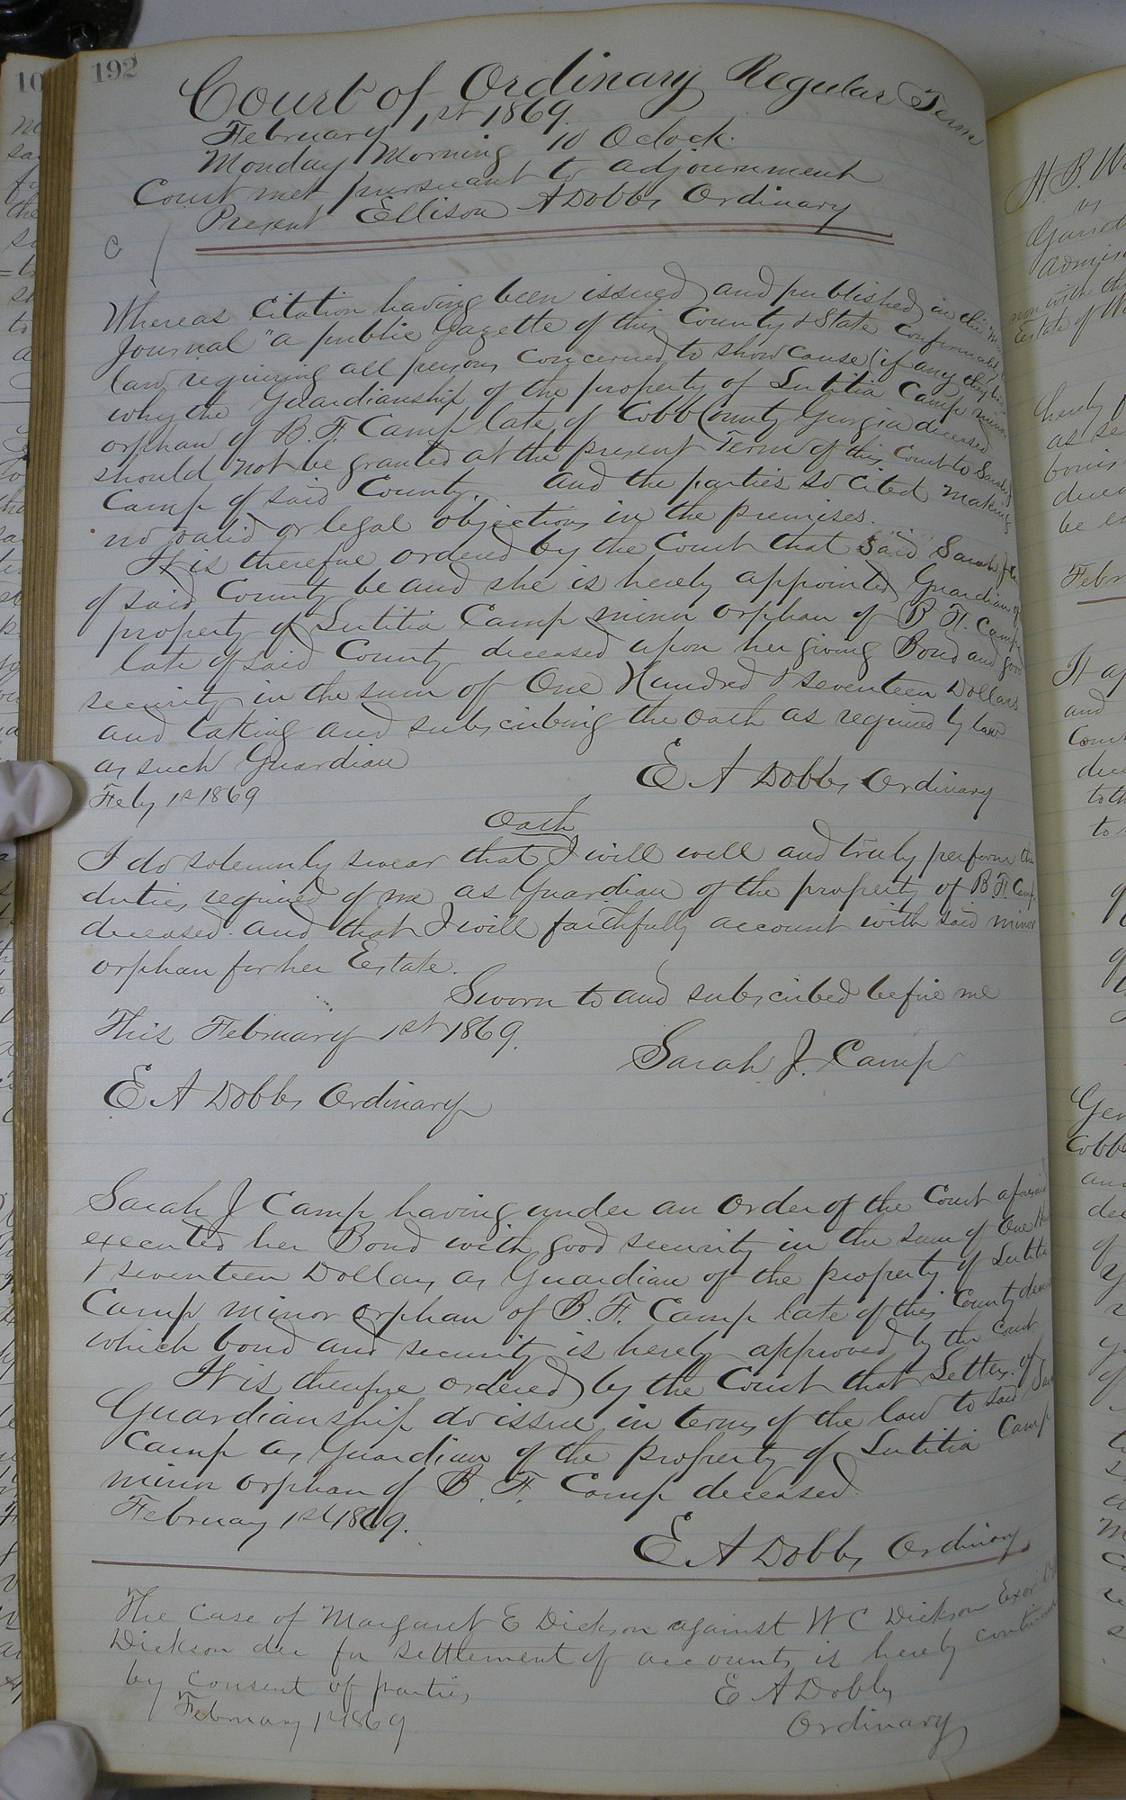 192
Court of Ordinary Regular Term
February 1st 1869.
Monday Morning 10 Oclock.
Court met pursuant to adjournment
Present Ellison A Dobbs Ordinary
Whereas Citation having been issued and published in the
Journal "a public gazette of this County & State conformably
law, requiring all persons concerned to show cause (if any they
why the Guardianship of the property of Lutitia Camp minor
orphan of B. F. Camp late of Cobb County Georgia deceased
should not be granted at the present Term of this Court to Sarah J
Camp of said County. and the parties so cited making
no valid or legal objections in the premises.
It is therefore ordered by the Court that said Sarah J
of said County be and she is hereby appointed Guardian of
property of Lutitia Camp minor orphan of B. F. Camp
late of said County deceased upon her giving Bond and good
security in the sum of One Hundred & seventeen Dollars
and taking and subscribing the oath as required by law
as such Guardian
E A Dobbs Ordinary
Feby 1st 1869
Oath
I do solemnly swear that I will well and truly perform the
duties required of me as Guardian of the property of B. F. Camp
deceased. and that I will faithfully account with said minor
orphan for her Estate.
Sworn to and subscribed before me
This February 1st 1869.
Sarah J. Camp
E A Dobbs Ordinary
Sarah J Camp having under an Order of the Court aforesaid
executed her Bond with good security in the sum of One
& seventeen Dollars as Guardian of the property of Lutitia
Camp minor orphan of B. F. Camp late of this County
which bond and security is hereby approved by the Court
It is therefore ordered by the Court that Letters of
Guardianship do issue in terms of the law to said
Camp as Guardian of the property of Lutitia Camp
minor orphan of B. F. Camp deceased.
February 1st 1869.
E A Dobbs Ordinary
The case of Margaret E Dickson against W C Dickson Exor
Dickson dec for settlement of accounts is hereby continued
by consent of parties
E A Dobbs
February 1st 1869
Ordinary